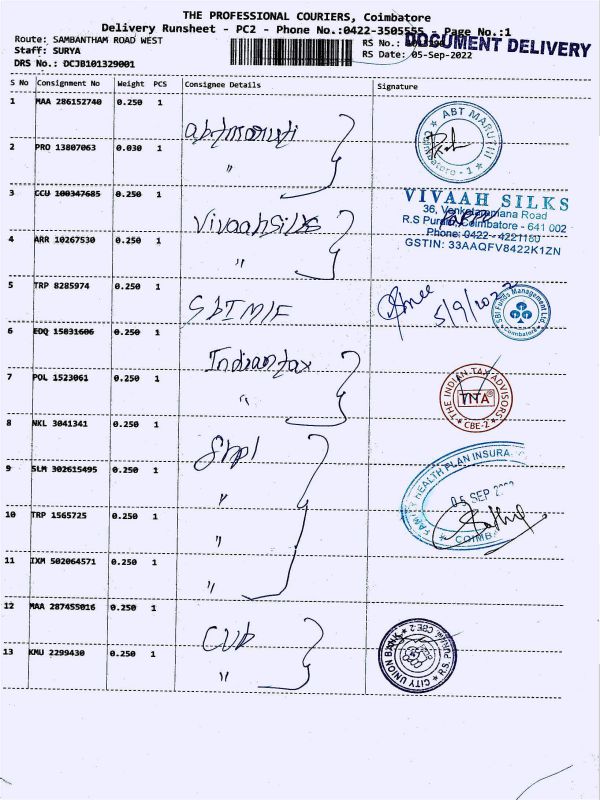 THE PROFESSIONAL COURIERS, Coimbatore
Delivery Runsheet - PC2 - Phone No.:0422-3505555 - Page No.:1
Route: SAMBANTHAM ROAD WEST
RS No.:
DOCUMENT DELIVERY
Staff: SURYA
RS Date: 05-Sep-2022
DRS No.: DCJB101329001
S No Consignment No Weight PCS Consignee Details Signature
1 MAA 286152740 0.250 1 abtmaruti
ABT MARUTHI
Coimbatore - 1
2 PRO 13807063 0.030 1 "
3 CCU 100347685 0.250 1 VivaahSilks
VIVAAH SILKS
36, Venkataramana Road
R.S Puram, Coimbatore - 641 002
Phone: 0422 - 4221160
GSTIN: 33AAQFV8422K1ZN
4 ARR 10267530 0.250 1 "
5 TRP 8285974 0.250 1 SbIMF
5/9/2022
SBI Funds Management Ltd
Coimbatore
6 EDQ 15031606 0.250 1 Indiantax
7 POL 1523061 0.250 1 "
THE INDIAN TAX ADVISORS
TITA
CBE-2
8 NKL 3041341 0.250 1 Fhpl
9 SLM 302615495 0.250 1 "
FAMILY HEALTH PLAN INSURA
05 SEP 2022
COIMBA
10 TRP 1565725 0.250 1 "
11 IXM 502064571 0.250 1 "
12 MAA 287455016 0.250 1 CUb
13 KMU 2299430 0.250 1 "
CITY UNION BANK
R.S. PURAM, CBE-2